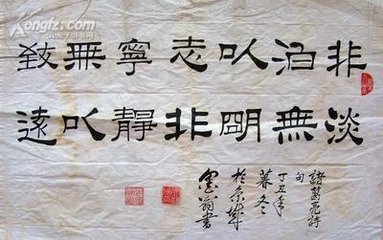 非淡
泊無
以明
志非
寧靜
無以
致遠
諸葛亮詩
句
丁丑年
暮冬
於京城